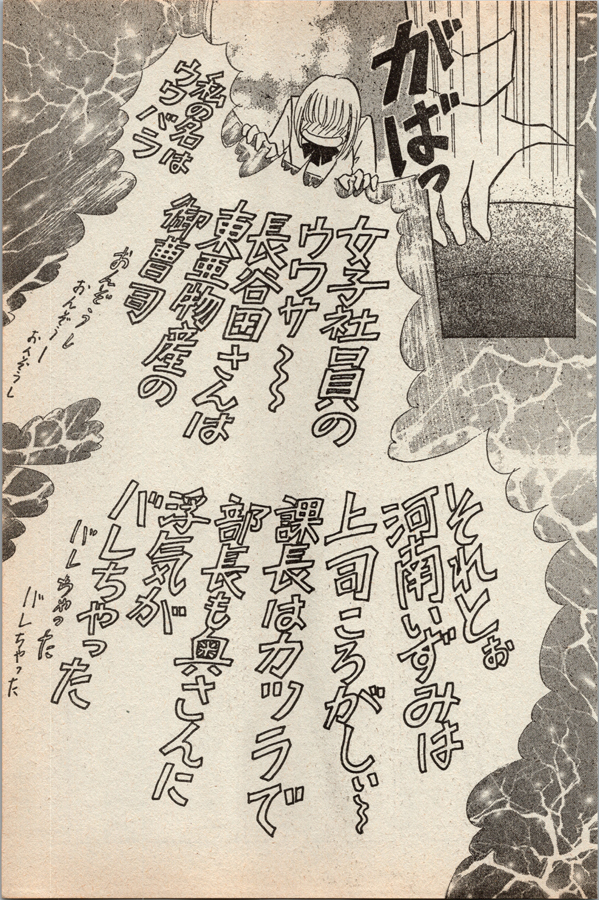 がばっ
私の名は
ウワバラ
女子社員の
ウワサ〜〜
長谷田さんは
東亜物産の
御曹司
おんぞうし
おんぞうしー
おんぞうし
それとぉ
河南いずみは
上司ころがしぃ〜
課長はカツラで
部長も奥さんに
浮気が
バレちゃった
バレちゃった
バレちゃった